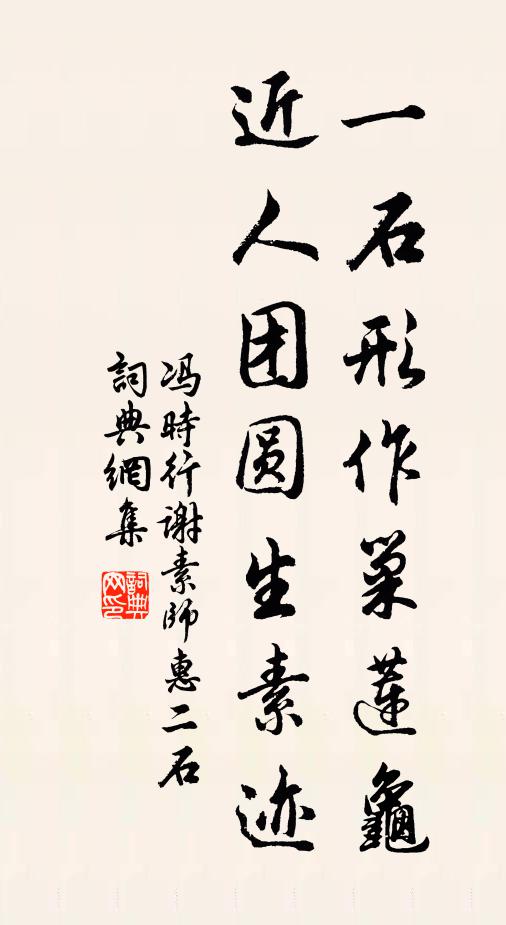 一石形作巢莲龜
近人团圆生素迹
冯時行谢素師惠二石
詞典網集
詞典网印